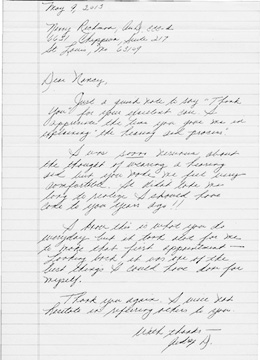 May 9, 2013
Nancy Richman, AuD, ccc-a
6651 Chippewa Suite 217
St. Louis, Mo 63109
Dear Nancy,
Just a quick note to say "Thank
You" for your excellent care. I
appreciate the time you gave me in
explaining "the hearing aid process."
I was sooo nervous about
the thought of wearing a hearing
aid but you made me feel very
comfortable. It didn't take me
long to realize I should have
come to you years ago!!
I know this is what you do
everyday but it took alot for me
to make that first appointment —
Looking back it was one of the
best things I could have done for
myself.
Thank you again. I will not
hesitate in referring others to you.
With thanks —
Judy D.